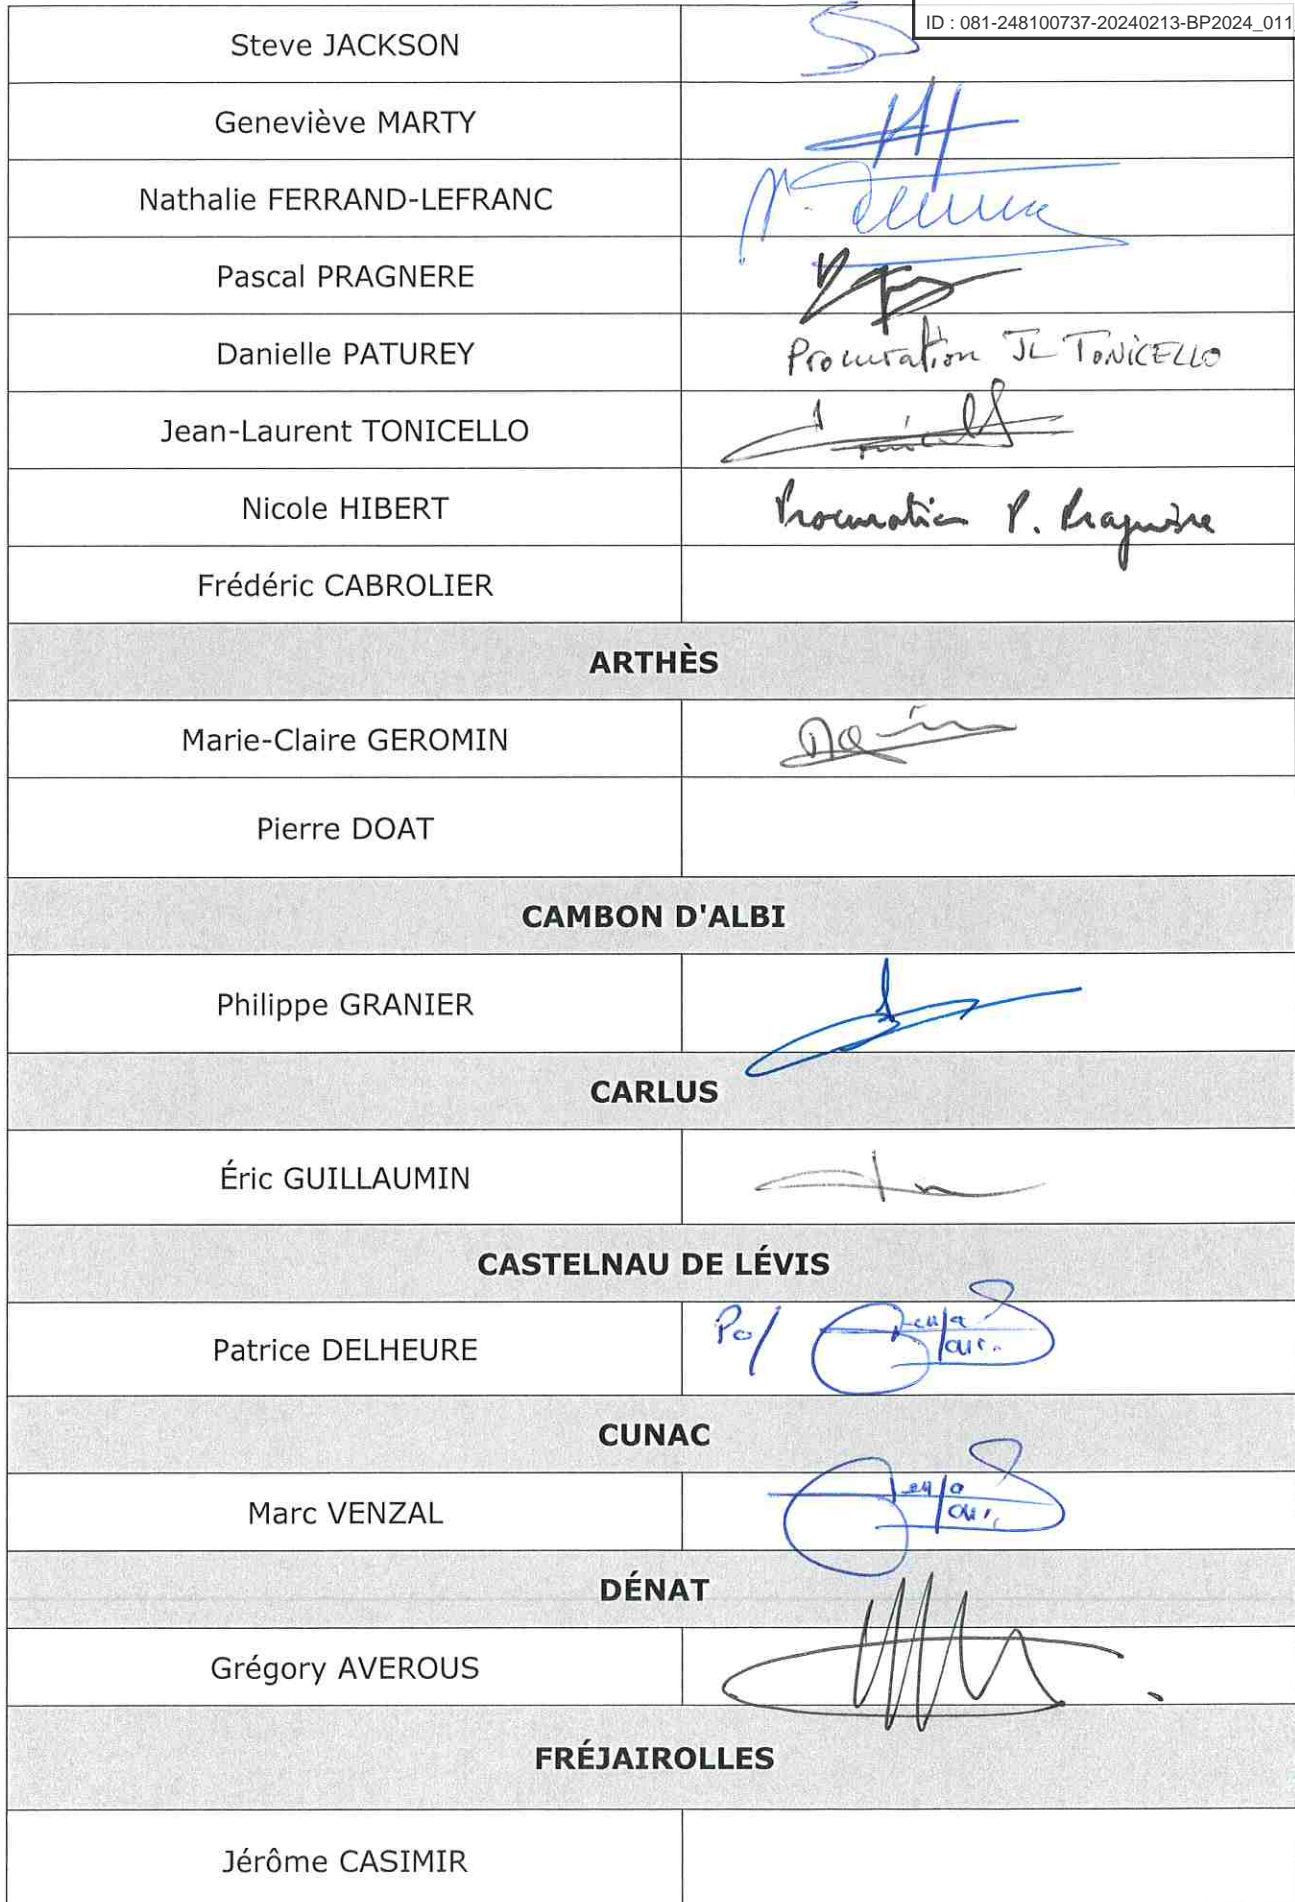 ID : 081-248100737-20240213-BP2024_011
Steve JACKSON
Geneviève MARTY
Nathalie FERRAND-LEFRANC
Pascal PRAGNERE
Danielle PATUREY Procuration JL TONICELLO
Jean-Laurent TONICELLO
Nicole HIBERT Procuration P. Pragnère
Frédéric CABROLIER
ARTHÈS
Marie-Claire GEROMIN
Pierre DOAT
CAMBON D'ALBI
Philippe GRANIER
CARLUS
Éric GUILLAUMIN
CASTELNAU DE LÉVIS
Patrice DELHEURE Po/
CUNAC
Marc VENZAL
DÉNAT
Grégory AVEROUS
FRÉJAIROLLES
Jérôme CASIMIR